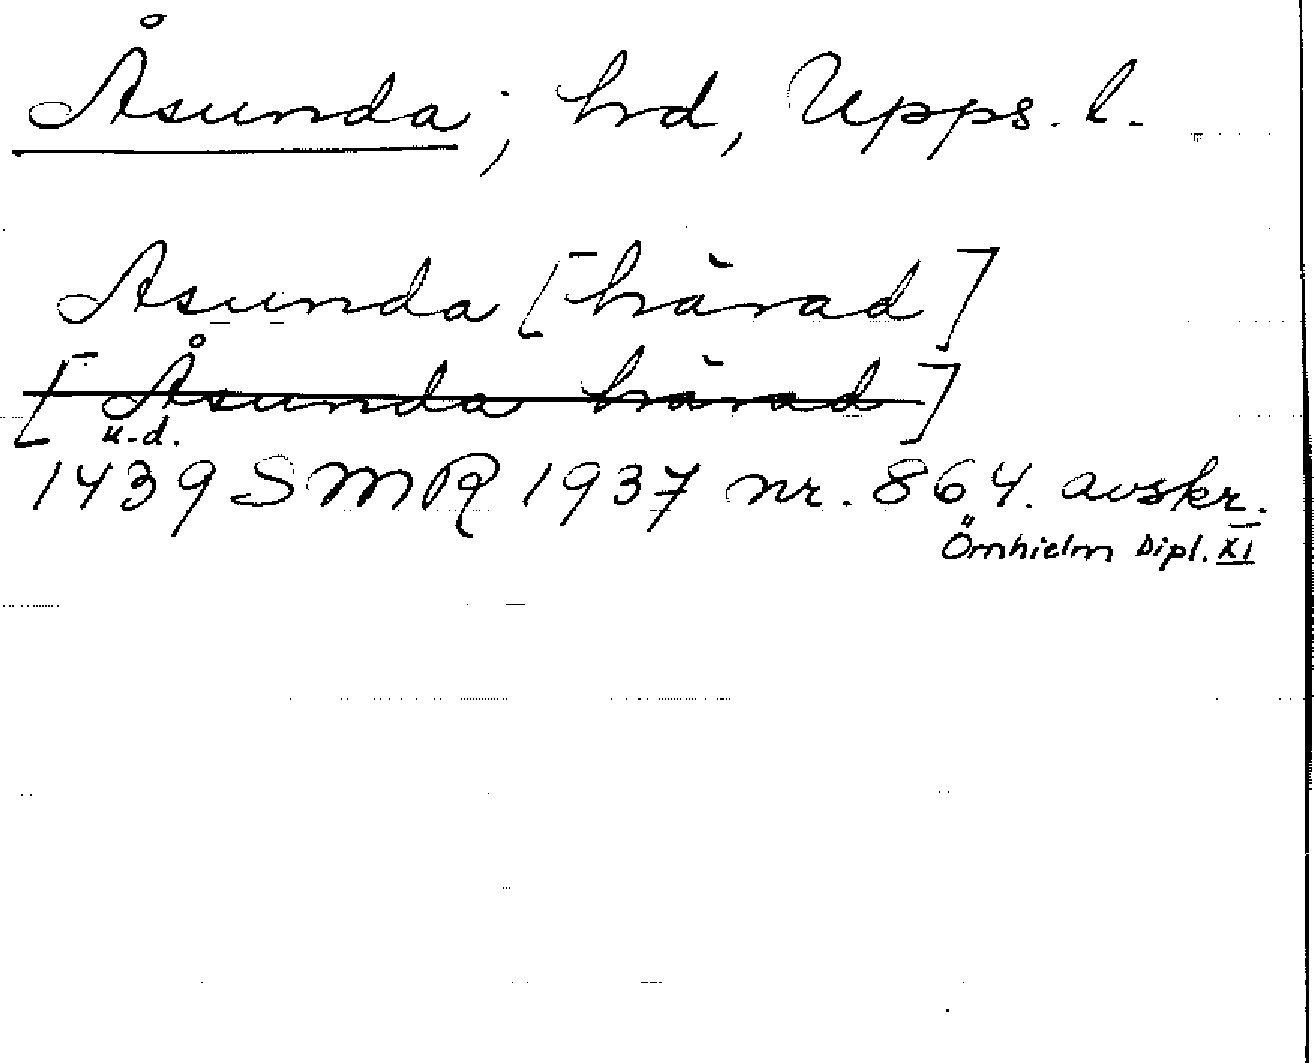 Åsunda; hd, Upps. l.
Asunda [härad]
[Åsunda härad]
u.d.
1439 SMR 1937 nr. 864. avskr.
Örnhielm Dipl. XI